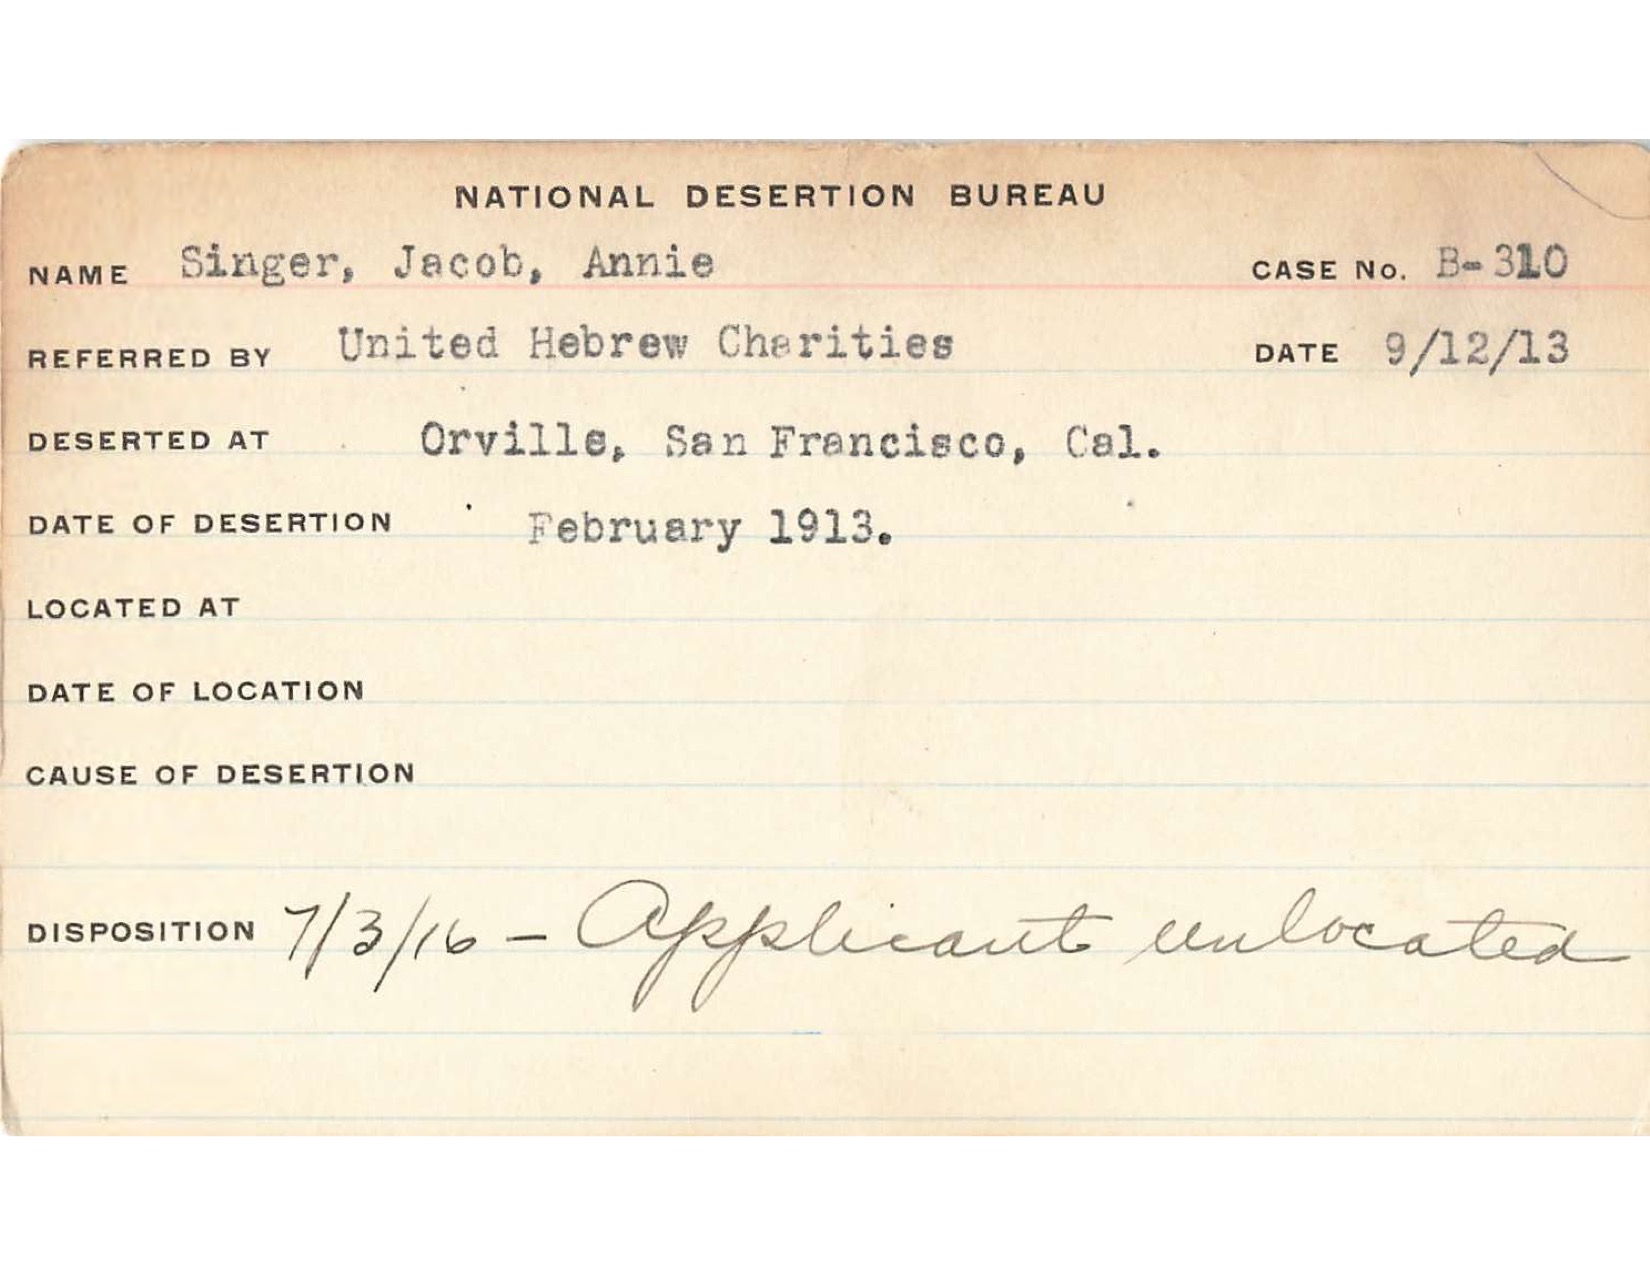 NATIONAL DESERTION BUREAU
NAME Singer, Jacob, Annie CASE No. B-310
REFERRED BY United Hebrew Charities DATE 9/12/13
DESERTED AT Orville, San Francisco, Cal.
DATE OF DESERTION February 1913.
LOCATED AT
DATE OF LOCATION
CAUSE OF DESERTION
DISPOSITION 7/3/16 - Applicant unlocated